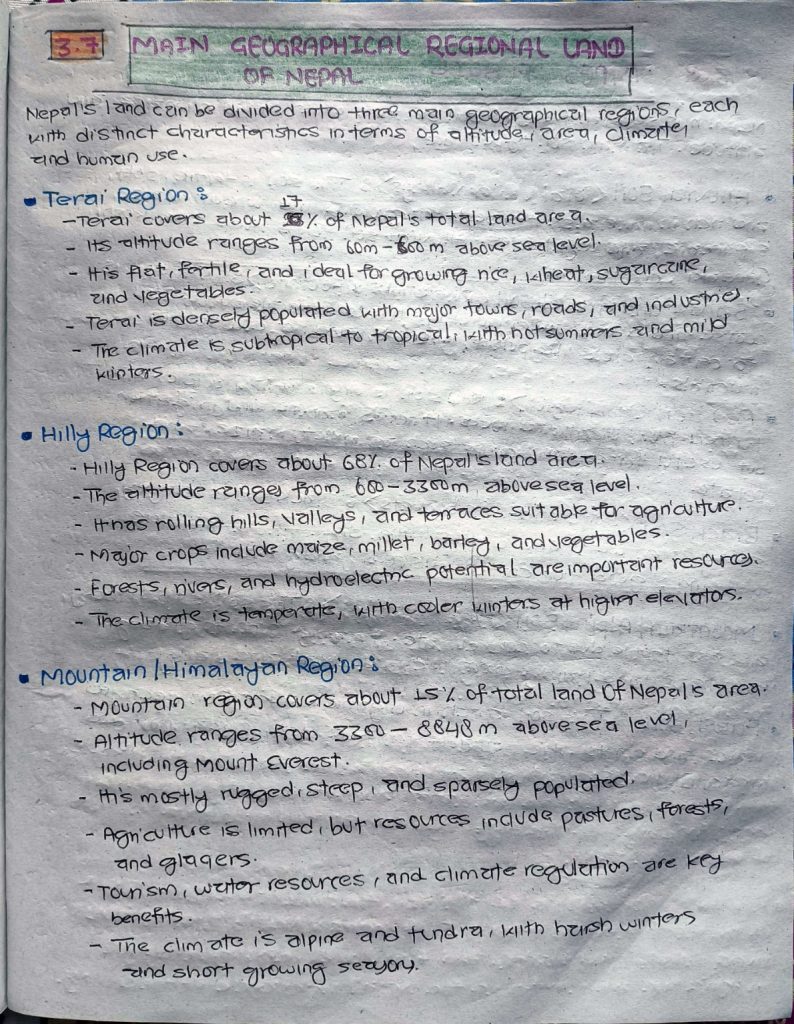 3.7 MAIN GEOGRAPHICAL REGIONAL LAND
OF NEPAL
Nepal's land can be divided into three main geographical regions, each
with distinct characteristics in terms of altitude, area, climate,
and human use.
• Terai Region :
- Terai covers about 17% of Nepal's total land area.
- Its altitude ranges from 60m - 600m above sea level.
- It is flat, fertile, and ideal for growing rice, wheat, sugarcane,
and vegetables.
- Terai is densely populated with major towns, roads, and industries.
- The climate is subtropical to tropical, with hot summers and mild
winters.
• Hilly Region :
- Hilly Region covers about 68% of Nepal's land area.
- The altitude ranges from 600 - 3300m above sea level.
- It has rolling hills, valleys, and terraces suitable for agriculture.
- Major crops include maize, millet, barley, and vegetables.
- Forests, rivers, and hydroelectric potential are important resources.
- The climate is temperate, with cooler winters at higher elevators.
• Mountain / Himalayan Region :
- Mountain region covers about 15% of total land Of Nepal's area.
- Altitude ranges from 3300 - 8848 m above sea level,
including Mount Everest.
- It's mostly rugged, steep, and sparsely populated.
- Agriculture is limited, but resources include pastures, forests,
and glaciers.
- Tourism, water resources, and climate regulation are key
benefits.
- The climate is alpine and tundra, with harsh winters
and short growing seasons.